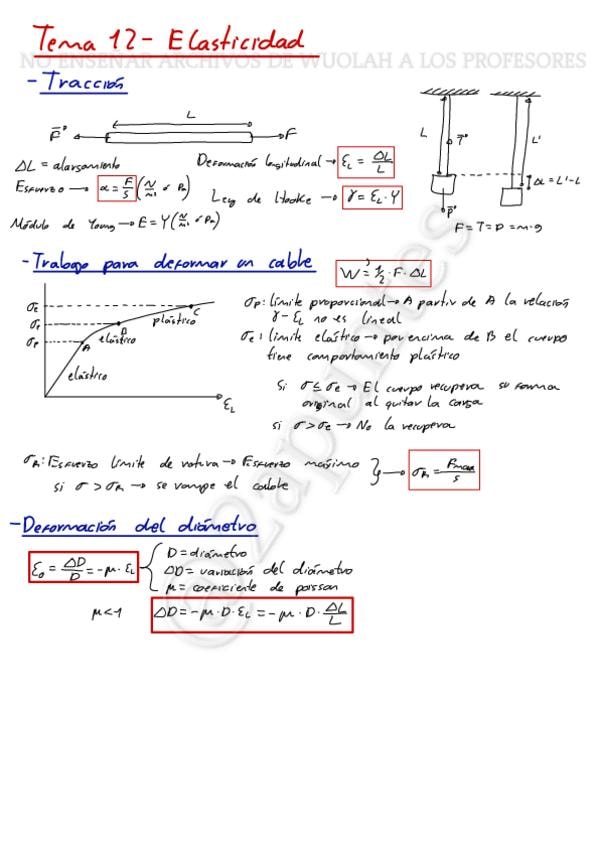 Tema 12- Elasticidad
NO ENSEÑAR ARCHIVOS DE WUOLAH A LOS PROFESORES
- Tracción
L
F F
ΔL = alargamiento
Deformación longitudinal → ε_L = ΔL/L
Esfuerzo → α = F/S (N/m² ó Pa)
Ley de Hooke → γ = ε_L · Y
Módulo de Young → E = Y (N/m² ó Pa)
L T P L' ΔL = L'-L
F = T = P = m·g
- Trabajo para deformar un cable W = 1/2 · F · ΔL
σp: límite proporcional → A partir de A la relación
γ - ε_L no es lineal
σe: límite elástico → por encima de B el cuerpo
tiene comportamiento plástico
Si σ ≤ σe → El cuerpo recupera su forma
original al quitar la carga
si σ > σe → No la recupera
σe
σe
σp
A
B
C
elástico
elástico
plástico
ε_L
σR: Esfuerzo límite de rotura → Esfuerzo máximo
si σ > σR → se rompe el cable
} → σR = Fmax/S
- Deformación del diámetro
ε_D = ΔD/D = -μ · ε_L
D = diámetro
ΔD = variación del diámetro
μ = coeficiente de poisson
μ < 1 ΔD = -μ · D · ε_L = -μ · D · ΔL/L
@2apuntes